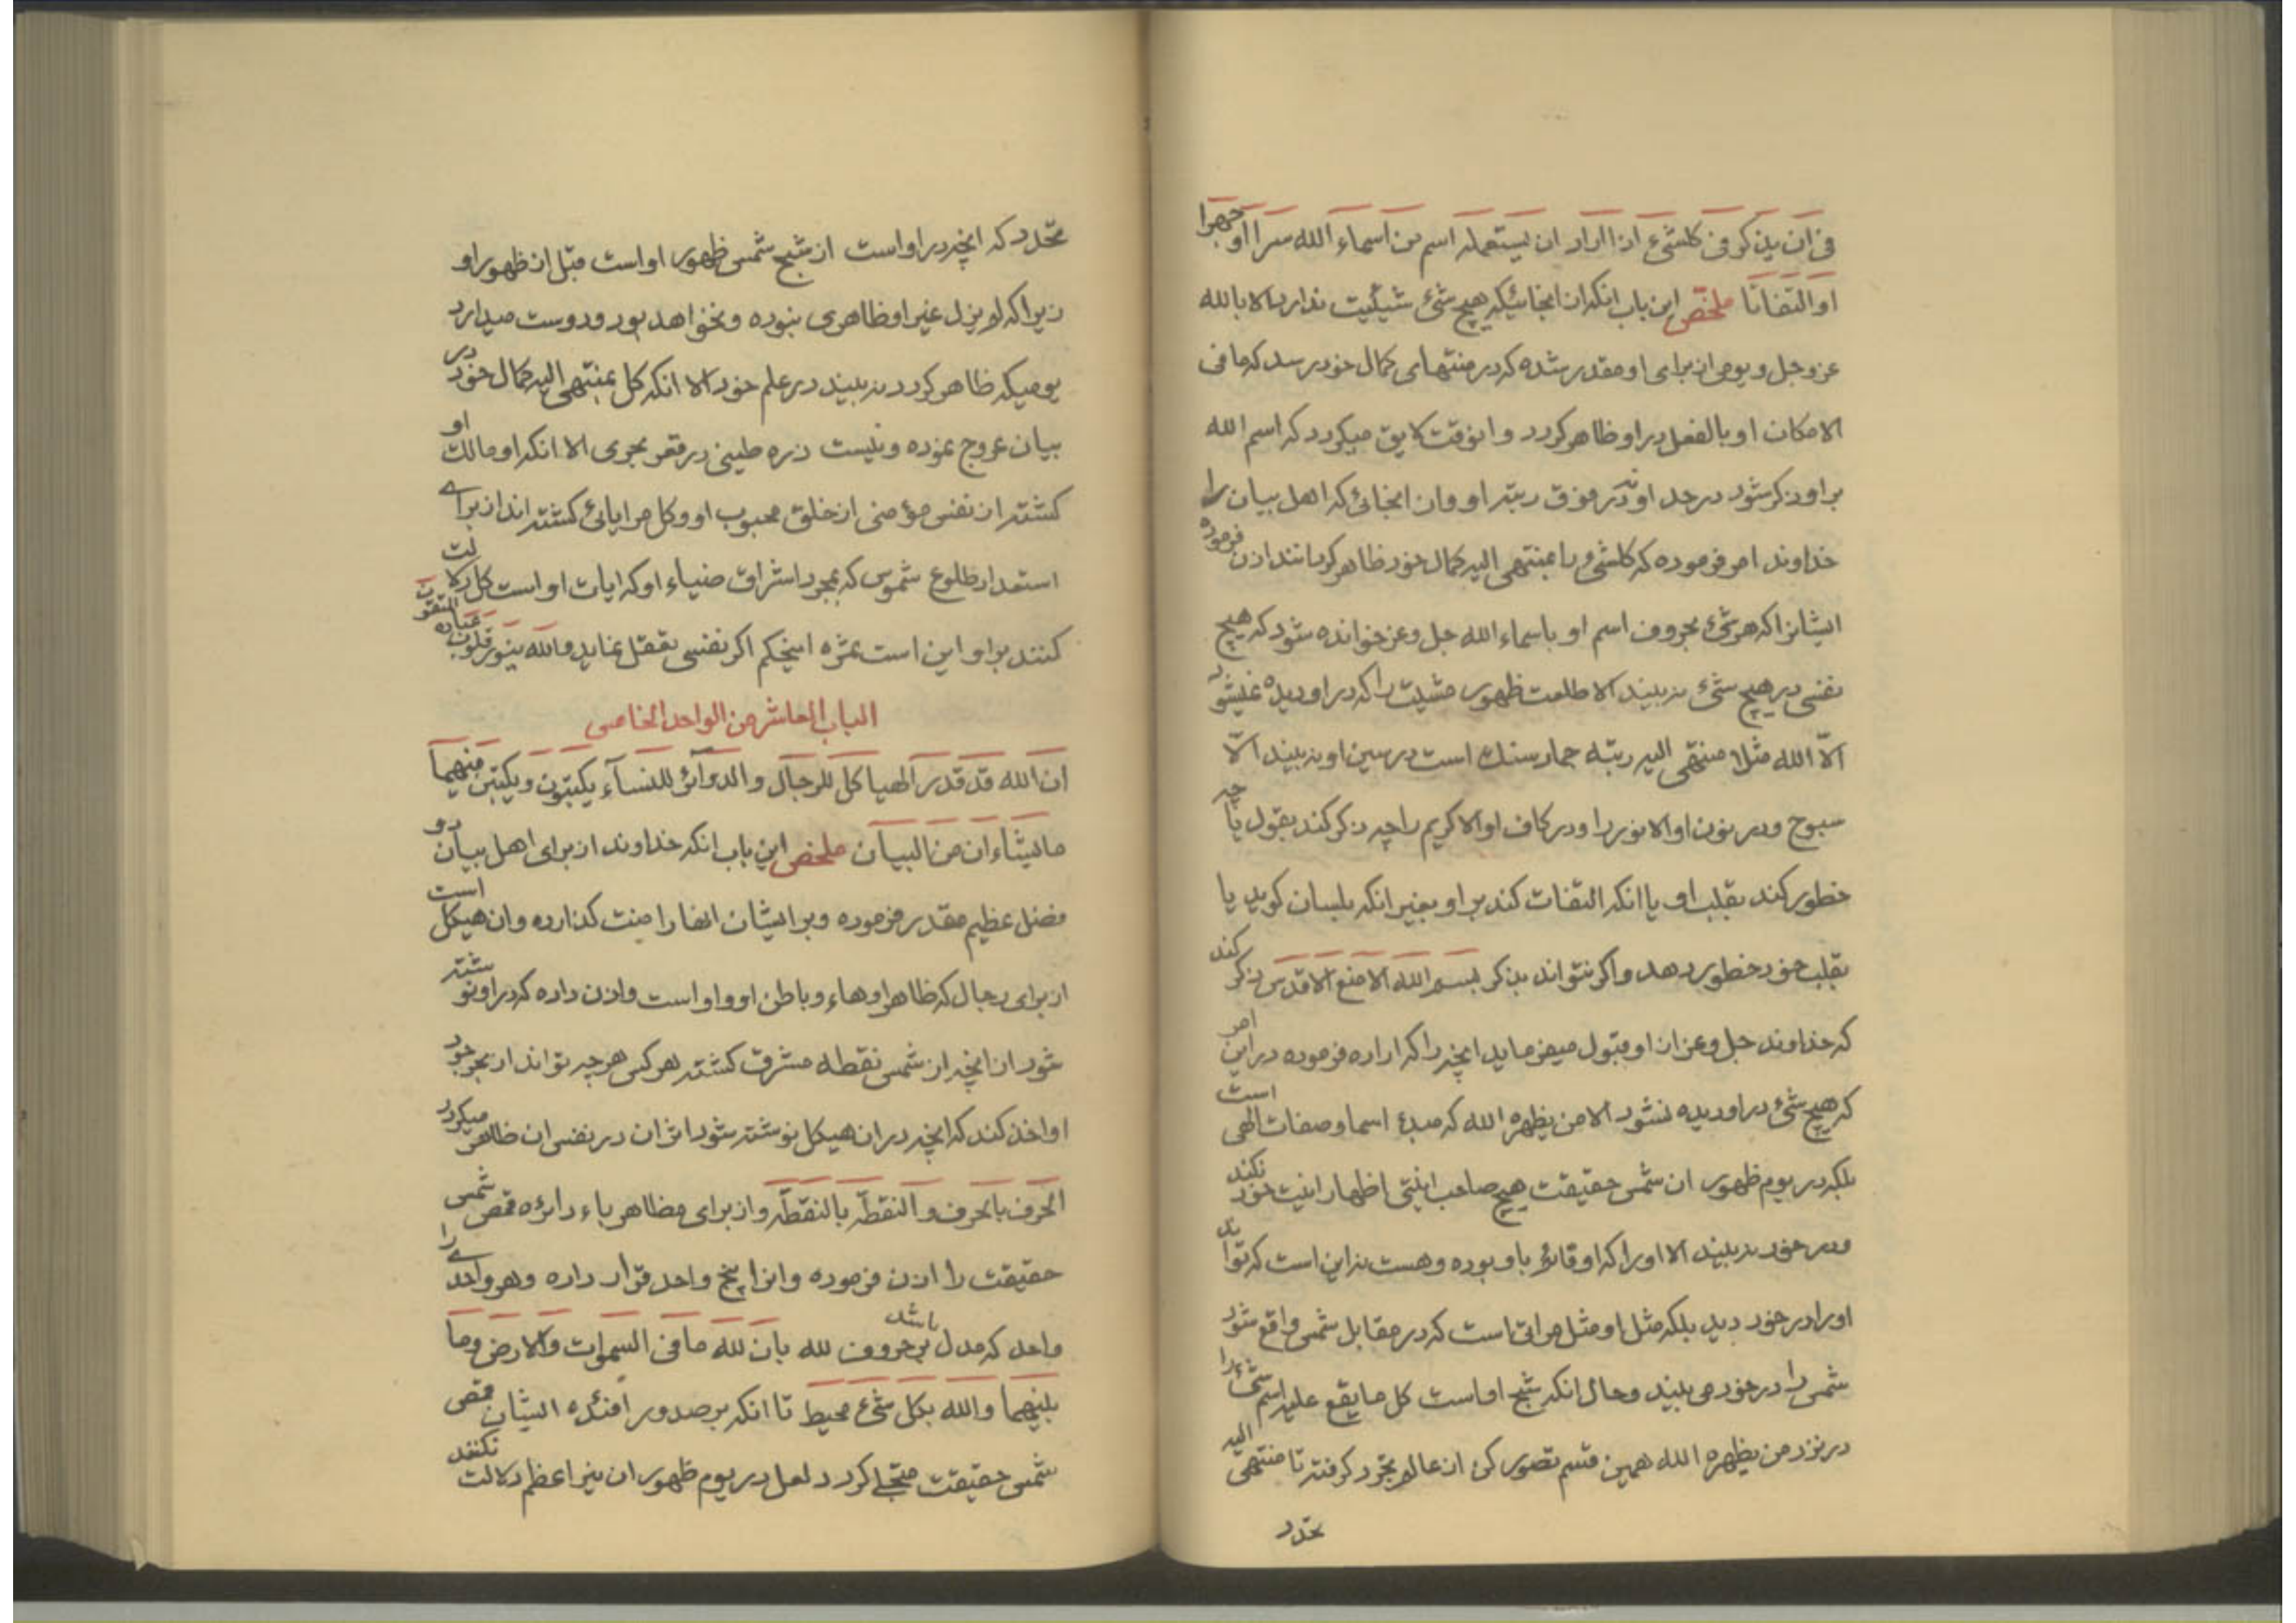 فی ان یذکر فی کلشیء اذا اراد ان یستعمله اسم من اسماء الله سرا او جهرا
او التفاتا ملخص این باب انکه از انجائیکه هیچ شیء شیئیت ندارد الا بالله
عز و جل و یومی از برای او مقدر شده که در منتهای کمال خود رسد که ما فی
الامکان او بالفعل در او ظاهر کردد و انوقت لایق میکردد که اسم الله
بر او ذکر شود در حد او نه در فوق رتبه او و از انجائی که اهل بیان را
خداوند امر فرموده که کلشیء را بمنتهی الیه کمال خود ظاهر کردانند اذن فرموده
ایشانرا که هر شیء بحروف اسم او باسماء الله جل و عز خوانده شود که هیچ
نفسی در هیچ شیء نه بیند الا طلعت ظهور مشیت را که در او دیده نمیشود
الّا الله مثلا منتهی الیه رتبه جماد سنک است در سین او نه بیند الّا
سبوح و در نون او الا نور را و در کاف او الا کریم را چه ذکر کند بقول یا چه
خطور کند بقلب او یا انکه التفات کند بر او بغیر انکه بلسان کوید یا
بقلب خود خطور دهد و اکر نتواند بذکر بسم الله الامنع الاقدس ذکر کند
که خداوند جل و عز از او قبول میفرماید انچه را که اراده فرموده در این امر
که هیچ شیء در او دیده نشود الا من یظهره الله که مبدء اسما و صفات الهی است
بلکه در یوم ظهور ان شمس حقیقت هیچ صاحب انیتی اظهار انیت خود نکند
و در خود نه بیند الا او را که او قائم باو بوده و هست نه این است که تواند
او را در خود دید بلکه مثل او مثل مراتی است که در مقابل شمس واقع شود
شمس را در خود می بیند و حال انکه شبح او است کل ما یقع علیه اسم شیء را
در نزد من یظهره الله همین قسم تصور کن از عالم تجرد کرفته تا منتهی الیه
تحدد
تحدد که انچه در او است از شبح شمس ظهور او است قبل از ظهور او
زیرا که لم یزل غیر او ظاهری نبوده و نخواهد بود و دوست میدارد
یومیکه ظاهر کردد نه بیند در علم خود الا انکه کل بمنتهی الیه کمال خود در
بیان عروج نموده و نیست ذره طینی در قعر بحری الا انکه او مالک او
کشته از نفس مؤمنی از خلق محبوب او و کل مرایائی کشته اند از برای
استعداد طلوع شموس که بمجرد اشراق ضیاء او که ایات او است کل دلالت
کنند بر او این است ثمره اینحکم اکر نفسی تعقل نماید و الله ینور قلوب عباده المتقون
الباب العاشر من الواحد الخامس
ان الله قد قدر الهیاکل للرجال و الدوائر للنسآء یکتبون و یکتبن منهما
ما یشاءان من البیان ملخص این باب انکه خداوند از برای اهل بیان دو
فضل عظیم مقدر فرموده و بر ایشان انها را منت کذارده و ان هیکل است
از برای رجال که ظاهر او هاء و باطن او واو است و اذن داده که در او نوشته
شود از انچه از شمس نقطه مشرق کشته هر کس هر چه تواند از بحر جود
او اخذ کند که انچه در ان هیکل نوشته شود اثر ان در نفس ان ظاهر میکردد
الحرف بالحرف و النقطه بالنقطه و از برای مظاهر باء دائره قمص شمس
حقیقت را اذن فرموده و انرا پنج واحد قرار داده و هر واحدی را
واحد که مدل بر حروف لله باشد بان لله ما فی السموات و الارض و ما
بینهما و الله بکل شیء محیط تا انکه بر صدور افئده ایشان قمص
شمس حقیقت متجلی کردد لعل در یوم ظهور ان نیر اعظم دلالت نکنند